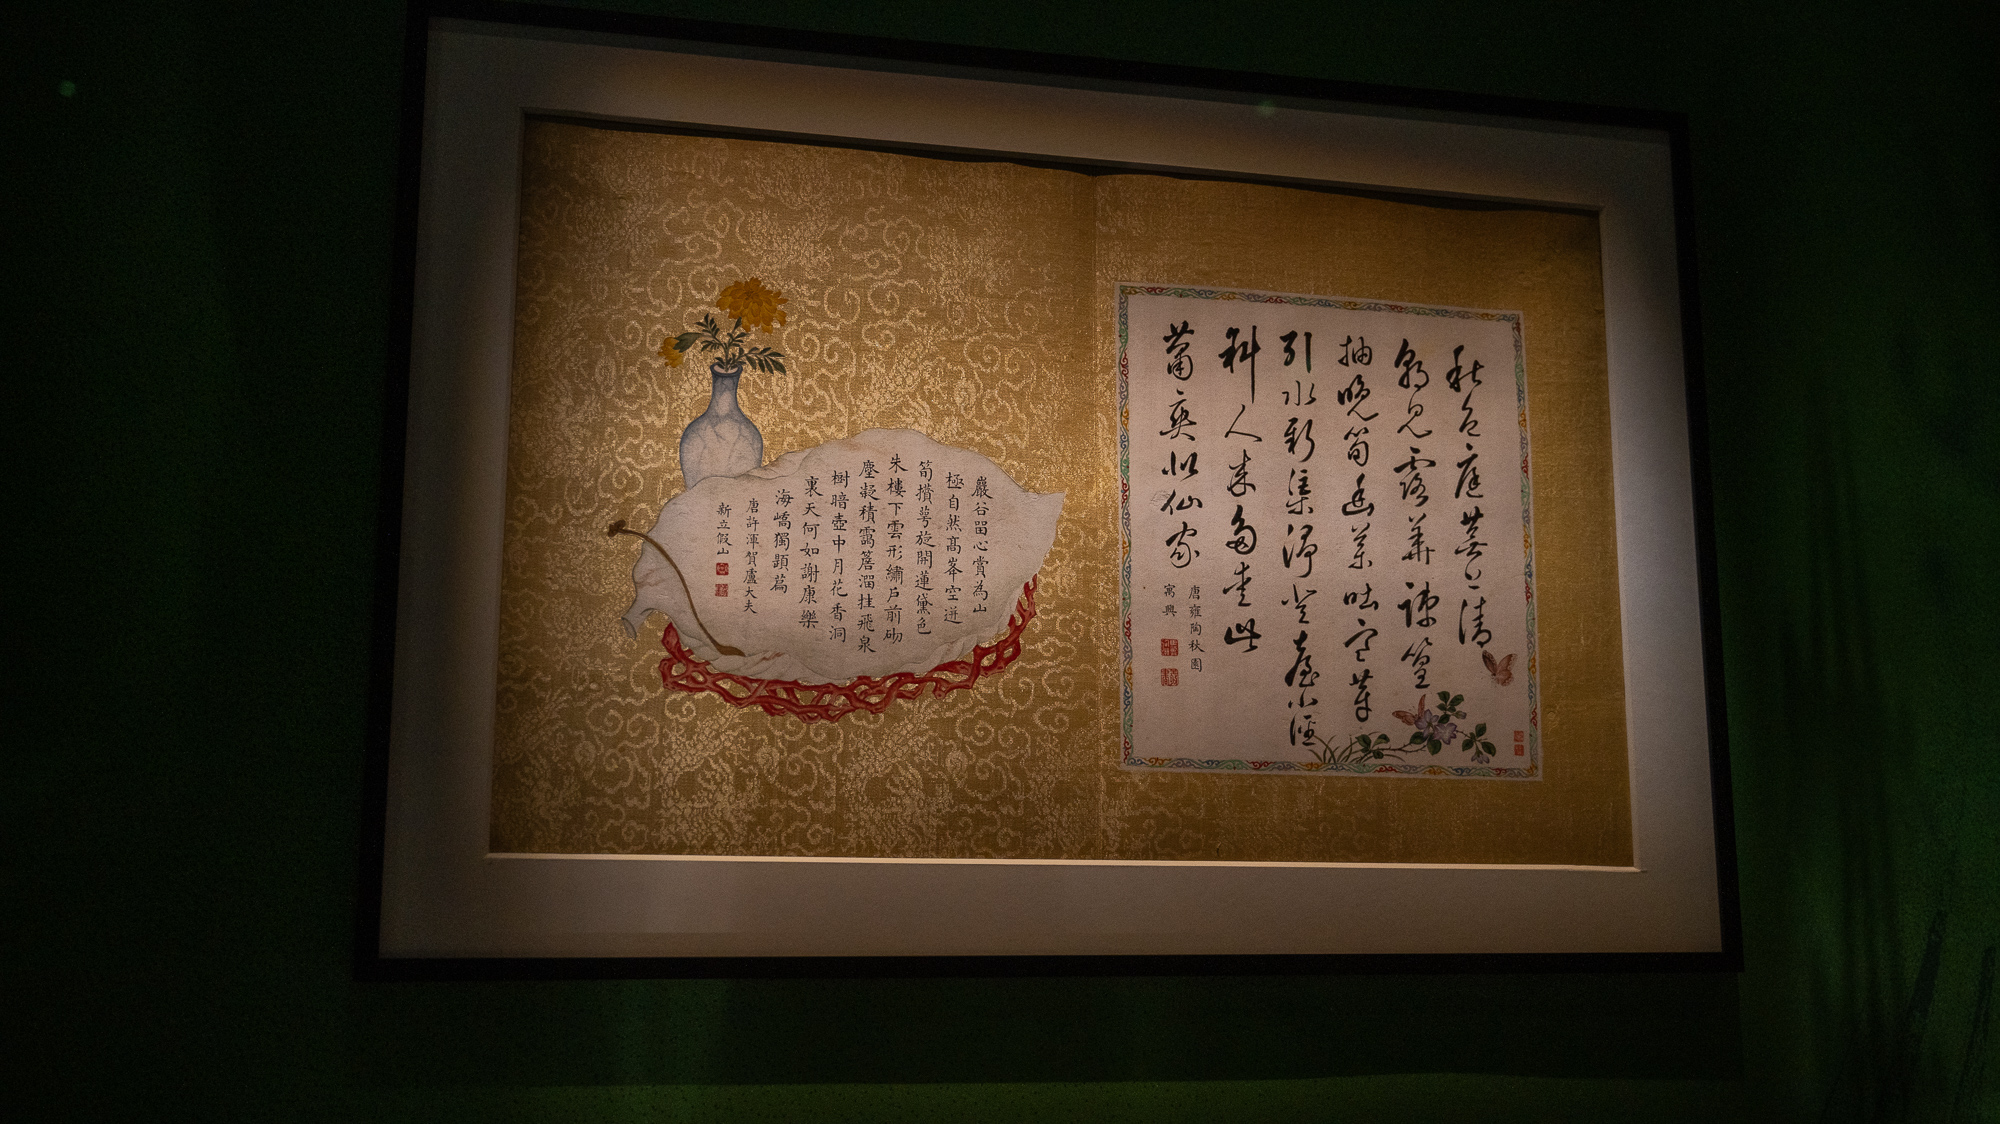 秋色庭蕪上清
朝見露華疎篁
抽晚筍幽葯吐寒芽
引水新渠淨登臺小徑
斜人來多愛此
蕭爽似仙家
唐雍陶秋園
寓興
巖谷畱心賞為山
極自然髙峯空迸
筍攢萼旋開蓮黛色
朱樓下雲形繡戶前砌
塵凝積靄簷溜挂飛泉
樹暗壺中月花香洞
裏天何如謝康樂
海嶠獨題篇
唐許渾賀盧大夫
新立假山